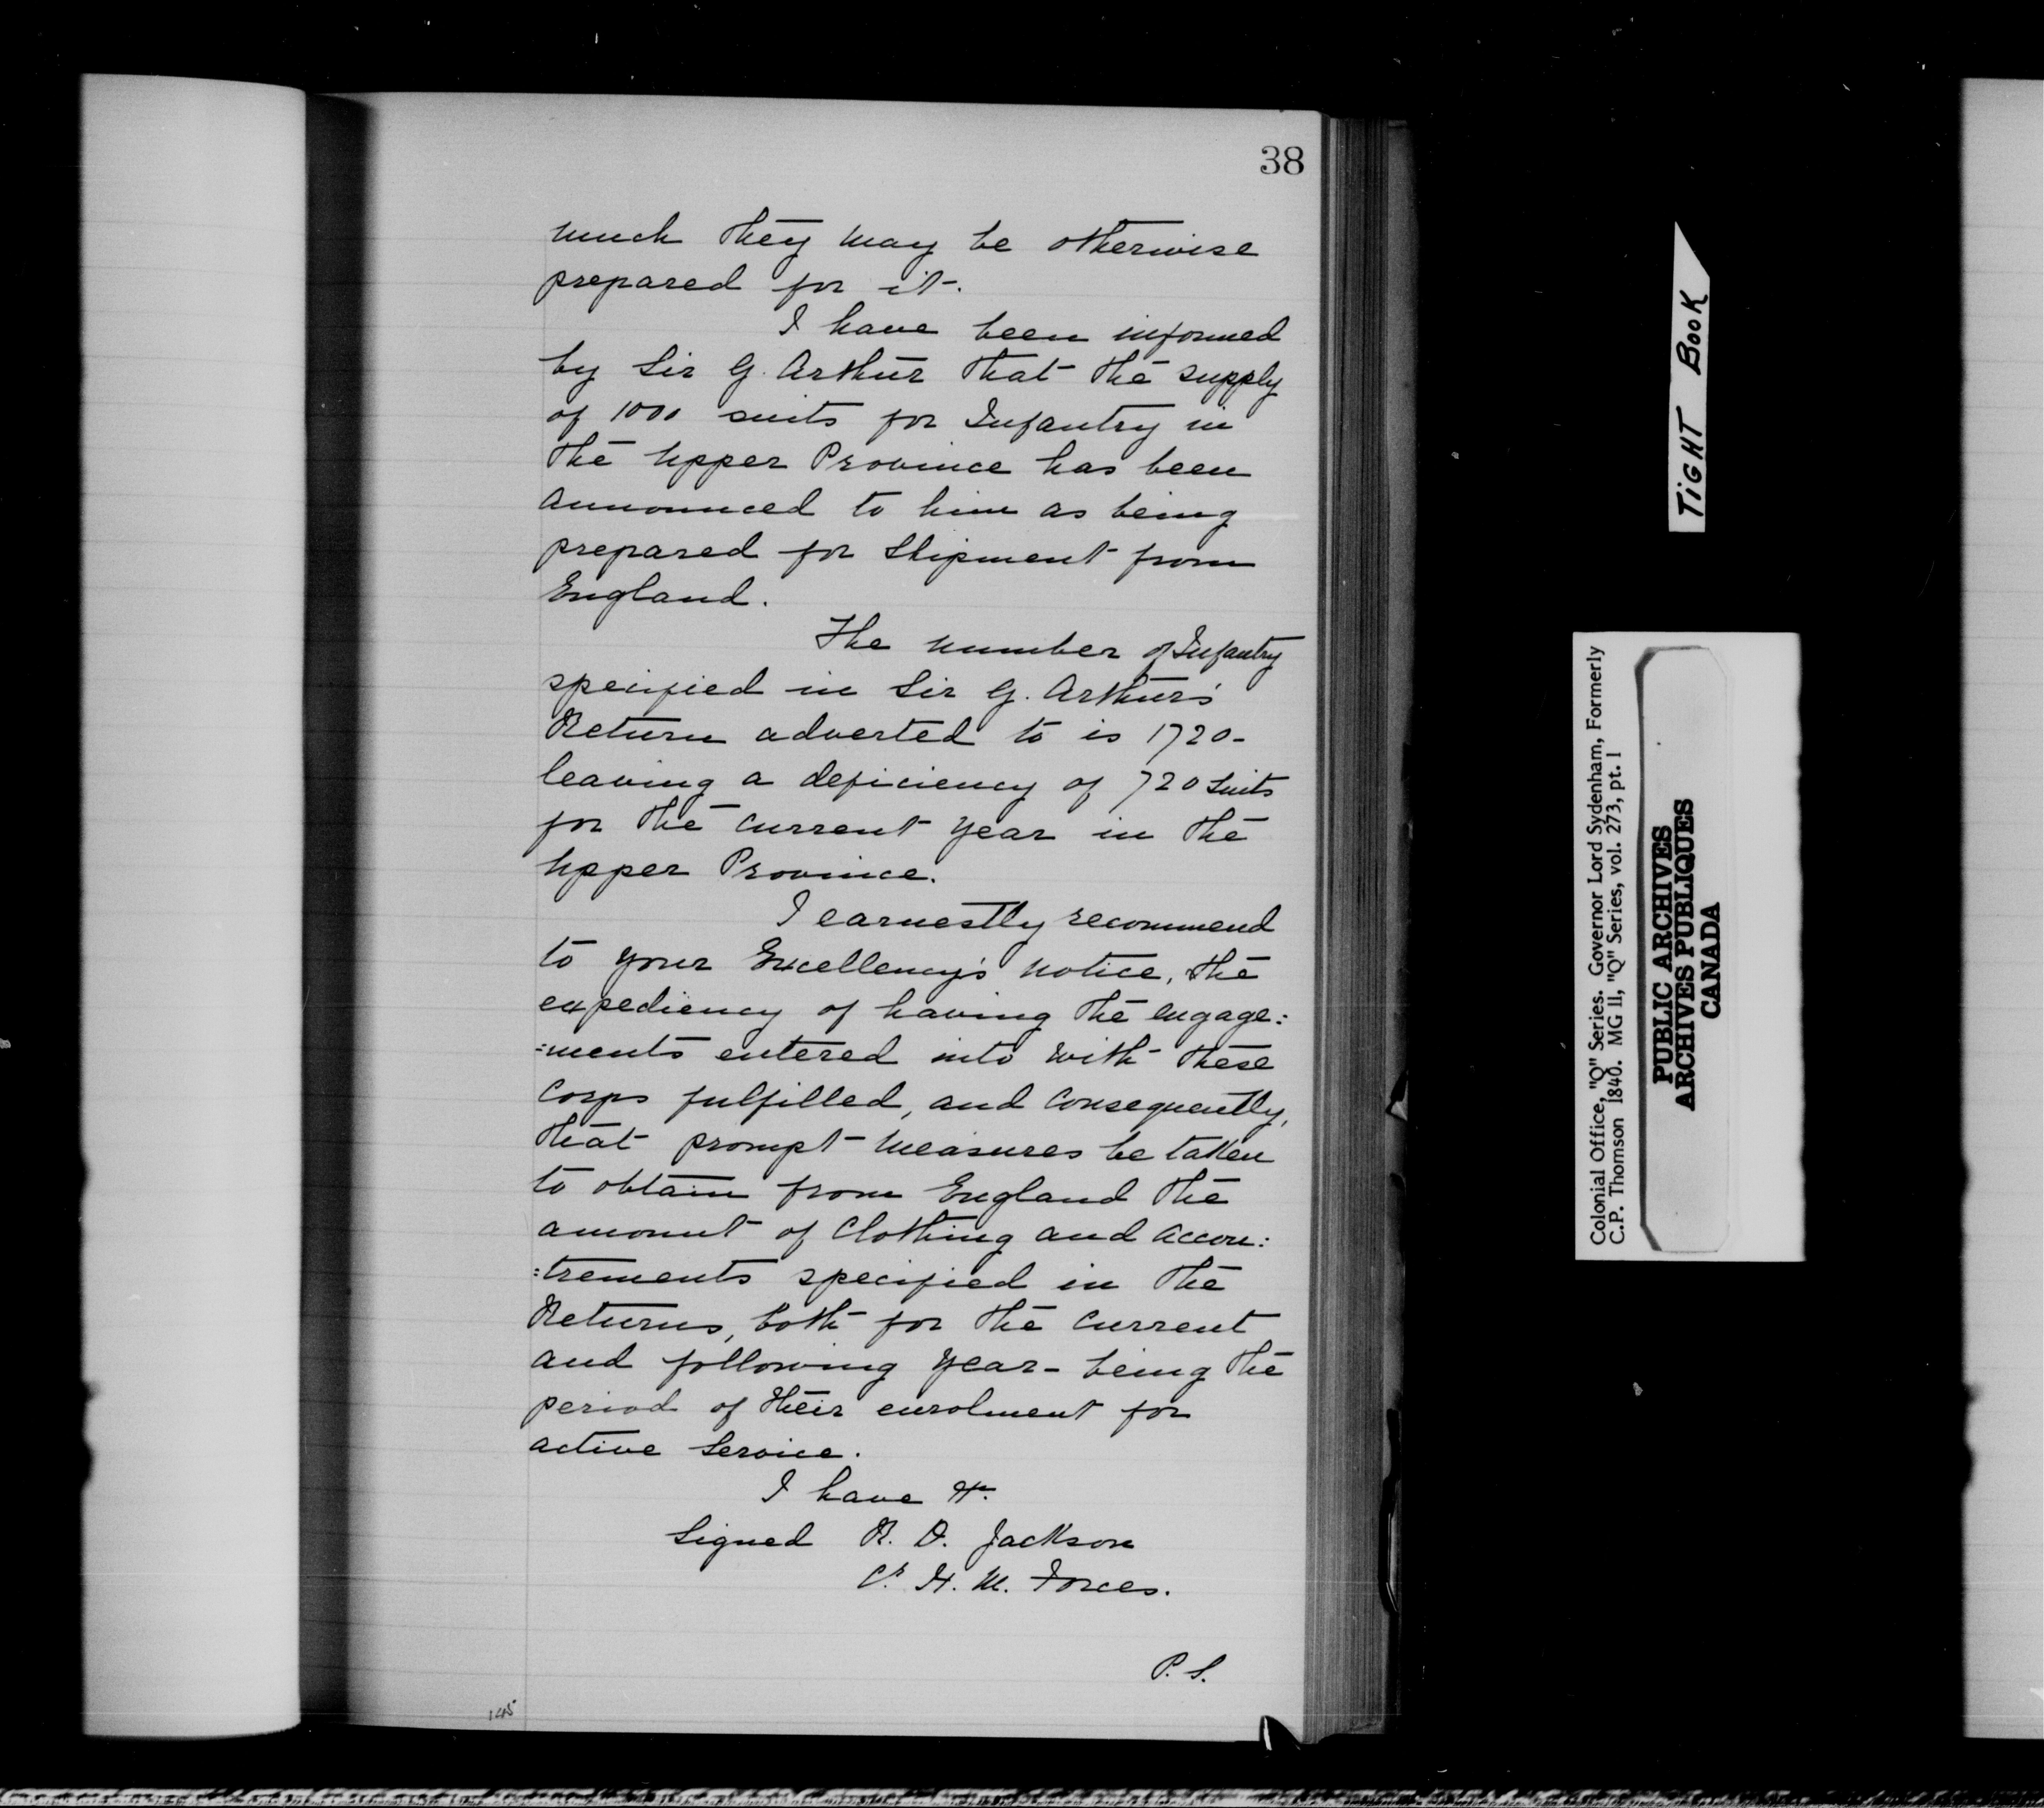 38
much they may be otherwise
prepared for it.
I have been informed
by Sir G. Arthur that the supply
of 1000 suits for Infantry in
the Upper Province has been
announced to him as being
prepared for Shipment from
England.
The number of Infantry
specified in Sir G. Arthur's
Return adverted to is 1720-
leaving a deficiency of 720 Suits
for the current year in the
Upper Province.
I earnestly recommend
to your Excellency's notice, the
expediency of having the engage:
:ments entered into with these
Corps fulfilled, and consequently,
that prompt measures be taken
to obtain from England the
amount of Clothing and accou:
:trements specified in the
Returns, both for the current
and following year - being the
period of their enrolment for
active Service.
I have &c.
Signed R. D. Jackson
Cr. H. M. Forces.
P.S.
145
TIGHT BOOK
Colonial Office, "Q" Series. Governor Lord Sydenham, Formerly
C.P. Thomson 1840. MG 11, "Q" Series, vol. 273, pt. 1
PUBLIC ARCHIVES
ARCHIVES PUBLIQUES
CANADA